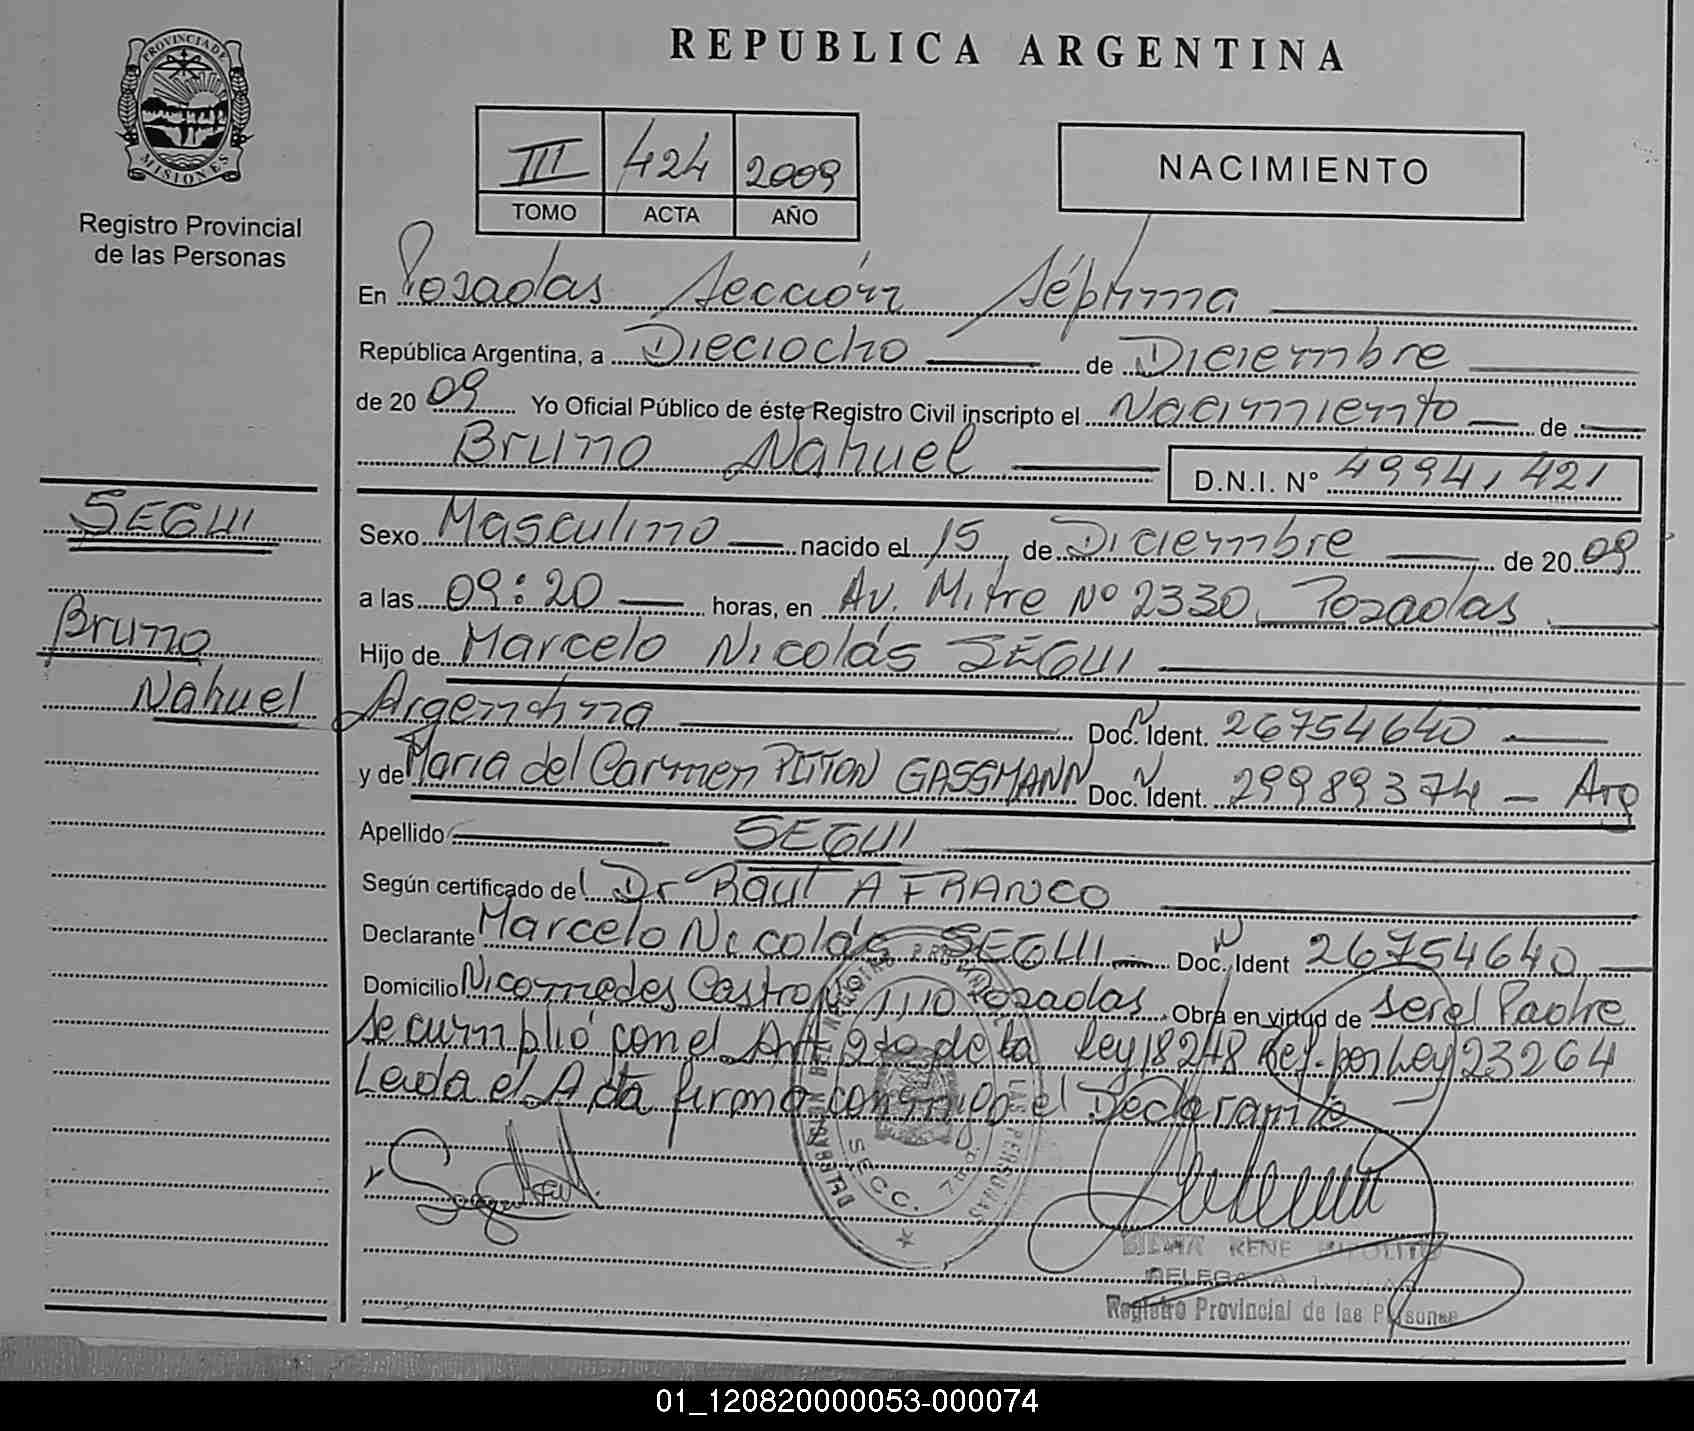 REPUBLICA ARGENTINA
PROVINCIA DE
MISIONES
Registro Provincial
de las Personas
III 424 2009
TOMO ACTA AÑO
NACIMIENTO
En Posadas Sección Séptima
República Argentina, a Dieciocho de Diciembre
de 20 09 Yo Oficial Público de éste Registro Civil inscripto el Nacimiento de
Bruno Nahuel D.N.I. Nº 49941421
SEGUI
Bruno
Nahuel
Sexo Masculino nacido el 15 de Diciembre de 20 09
a las 09:20 horas, en Av. Mitre Nº 2330 Posadas
Hijo de Marcelo Nicolás SEGUI
Argentina Doc. Ident. 26754640
y de Maria del Carmen PITTON GASSMANN Doc. Ident. 29989374 - Arg
Apellido SEGUI
Según certificado del Dr Raúl A FRANCO
Declarante Marcelo Nicolás SEGUI Doc. Ident 26754640
Domicilio Nicomedes Castro Nº 1110 Posadas Obra en virtud de ser el Padre
Se cumplió con el Art 2do de la Ley 18248 Ref. por Ley 23264
Leida el Acta firma conmigo el Declarante
SECC. 7ma.
RENE HIPOLITO
Registro Provincial de las Personas
01_120820000053-000074